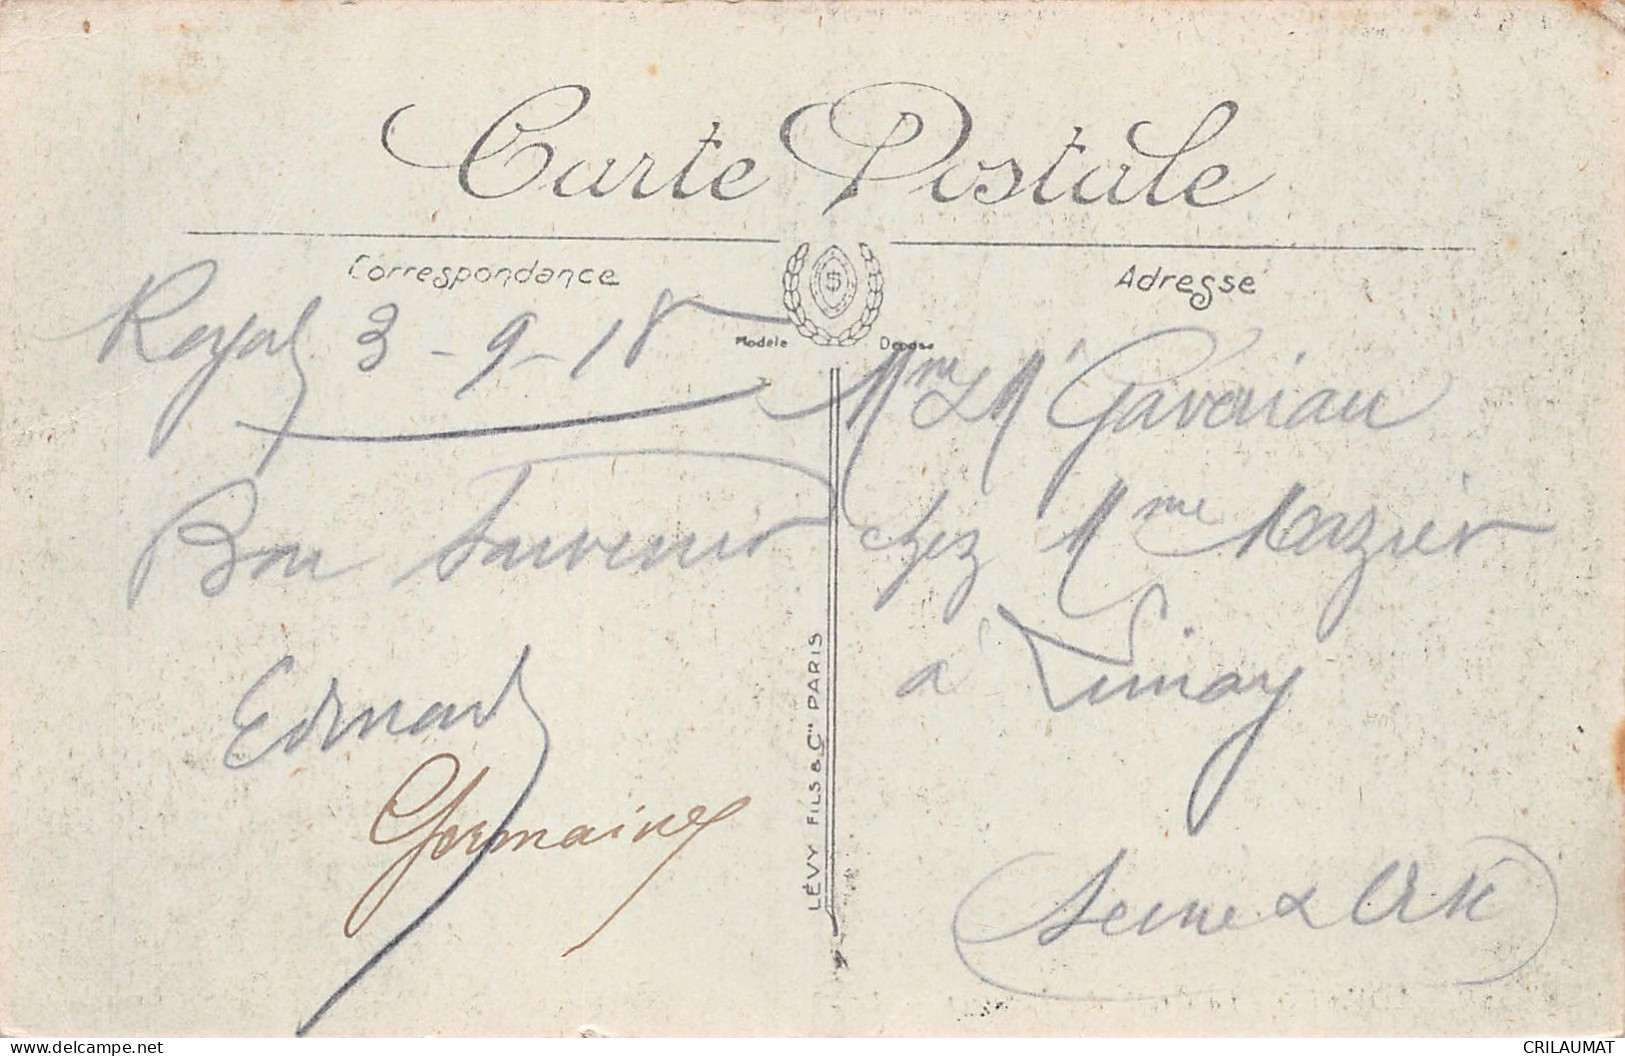 Carte Postale
Correspondance
Adresse
Modèle Déposé
Royat 3-9-18
Bon Souvenir
Edmond
Germaine
LÉVY FILS & Cie PARIS
Mme & Mr Gavoriau
chez Mme Mazier
à Limay
Seine & Oise
CRILAUMAT